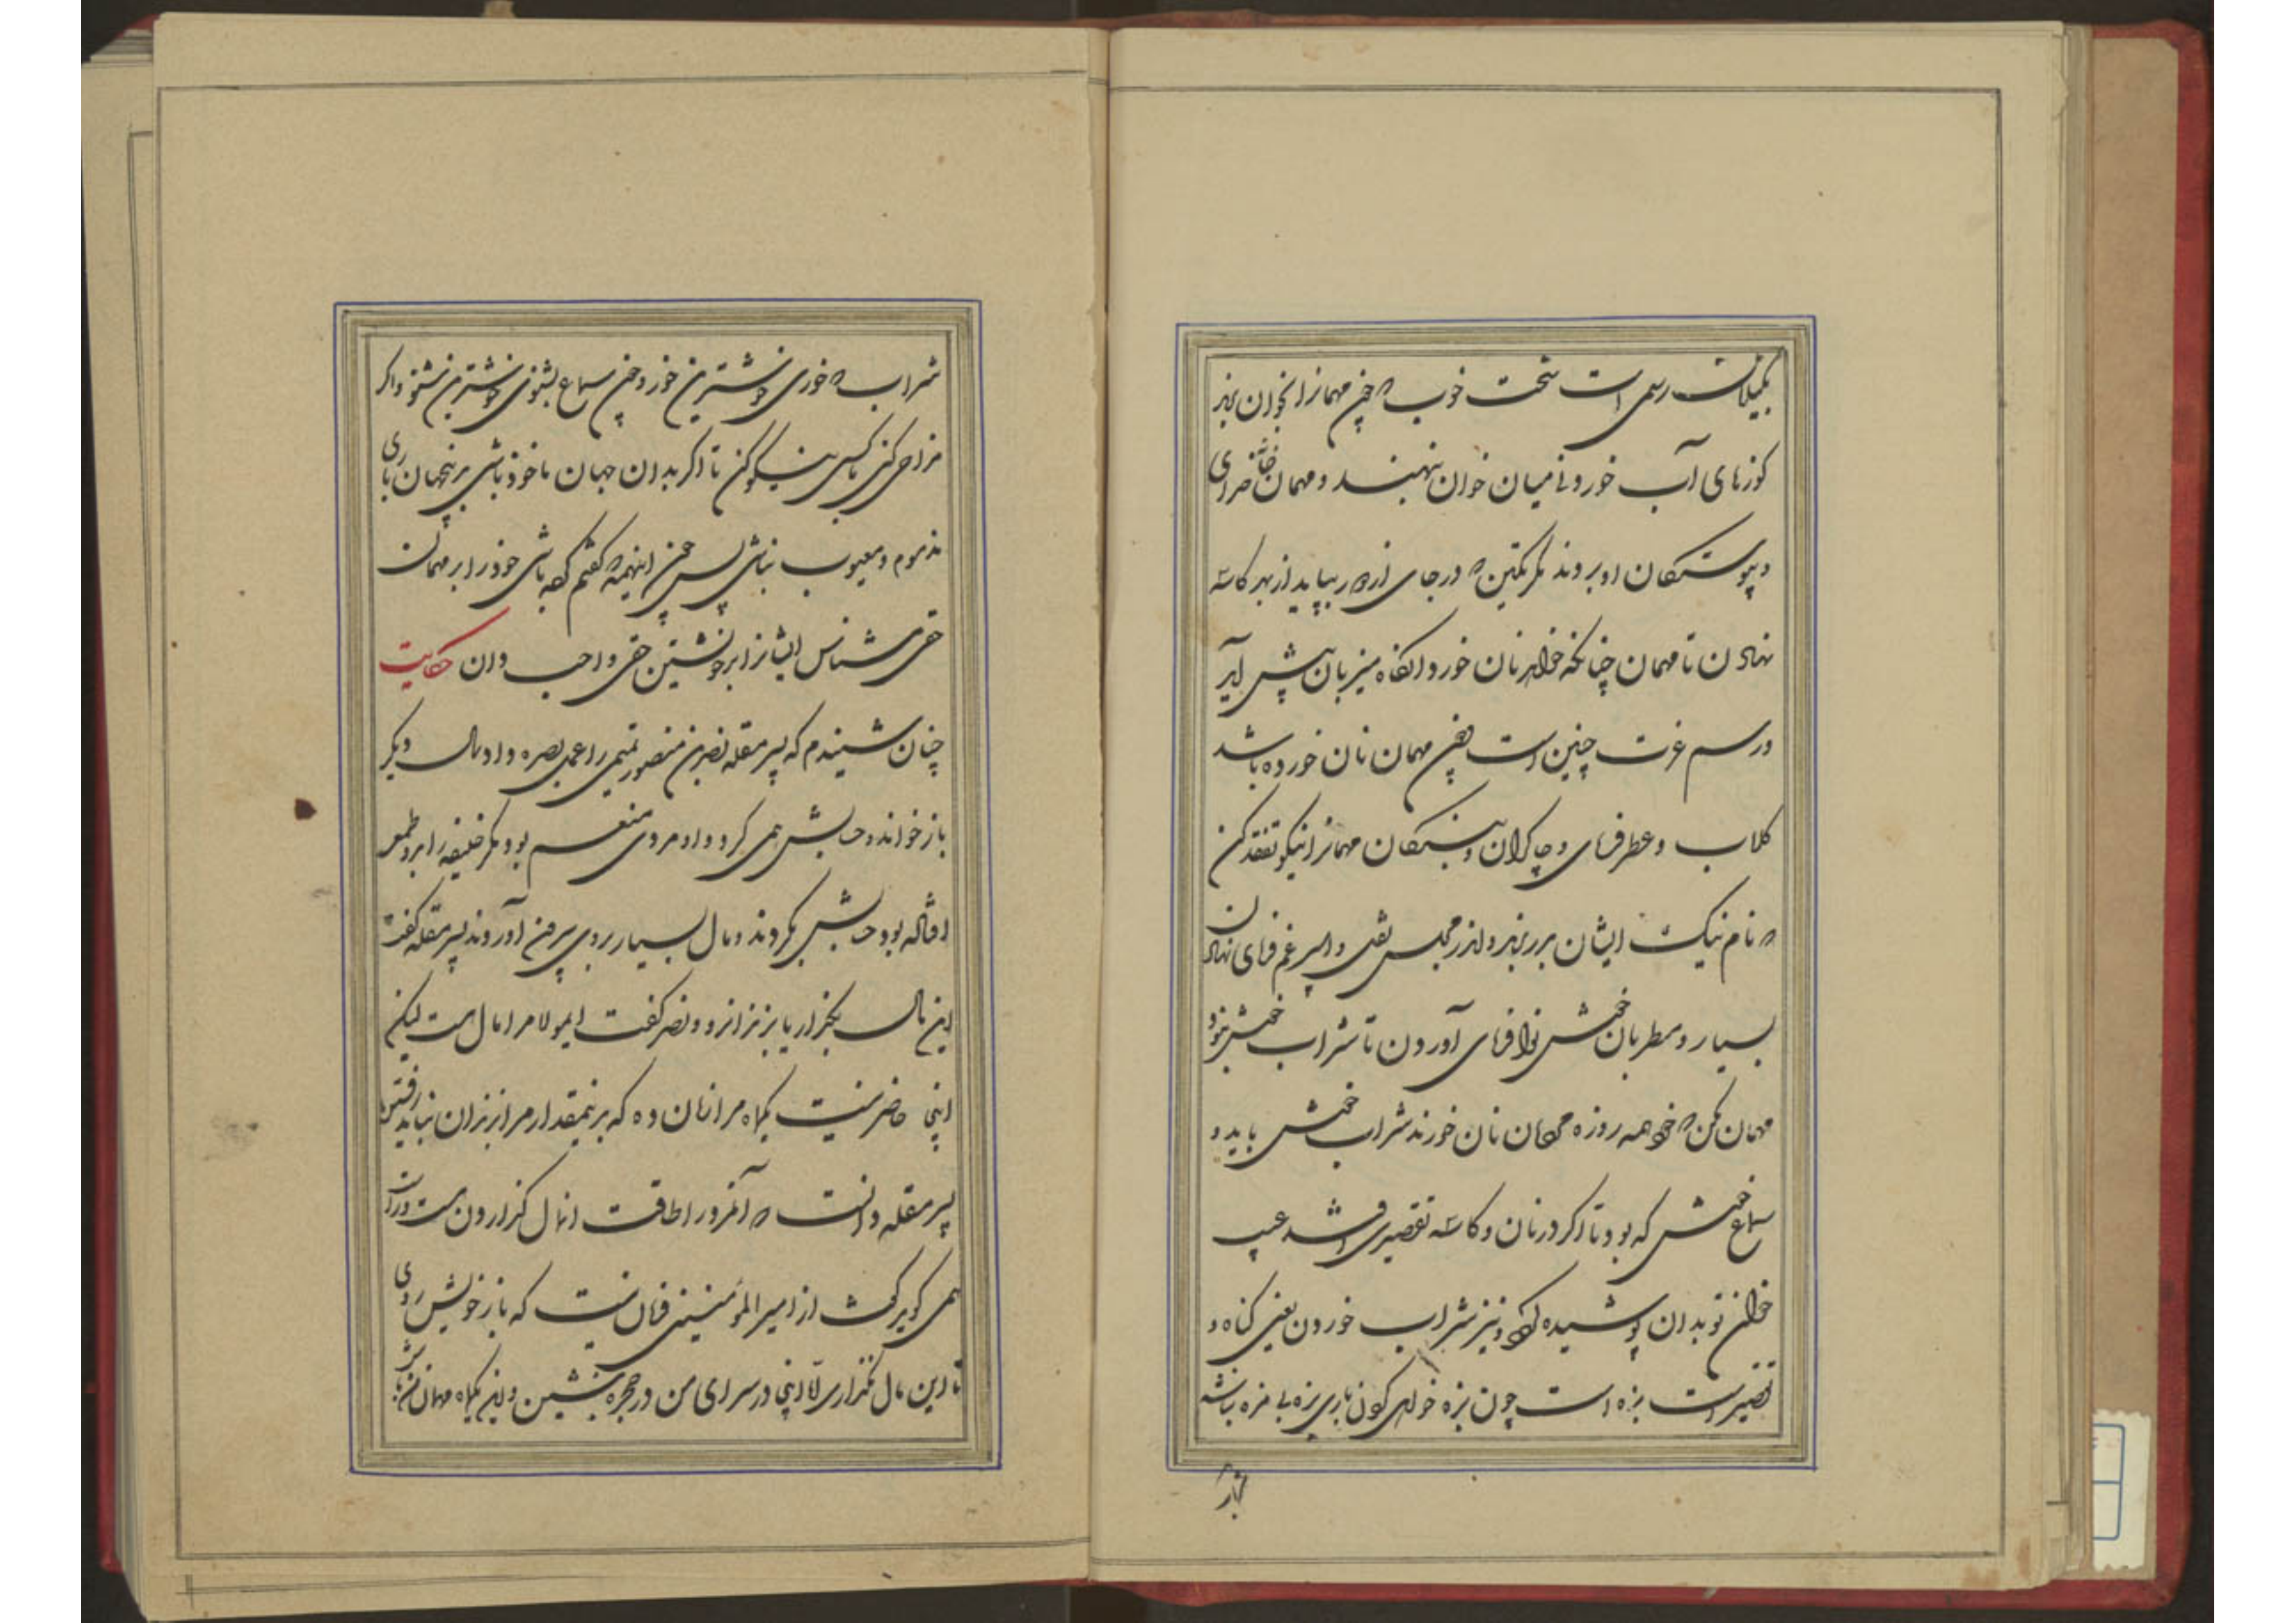 بگیلان رسمی است سخت خوب که چون مهمانرا بخوان برند
کوزهای آب خوردنی میان خوان بنهند و مهمان خانه خدای
و پیوستگان او بروند مگر یکتن که در جای از دور بپاید از بهر کاسه
نهادن تا مهمان چنانکه خواهد نان خورد و آنگاه میزبان پیش آید
و رسم عرب چنین است چون مهمان نان خورده باشد
گلاب و عطر فرمای و چاکران و بندگان مهمانرا نیکو تفقد کن
که نام نیک ایشان برند و اندر مجلس نقل و اسپرغم فرمای نهادن
بسیار و مطربان خوش نوا فرمای آوردن تا شراب خوش نبود
مهمان مکن که خود همه روزه مردمان نان خورند شراب خوش باید و
سماع خوش که بود تا اگر در نان و کاسه تقصیری افتد عیب
خوان تو بدان پوشیده گردد و نیز شراب خوردن یعنی گناه و
تقصیر است بزه است چون بزه خواهی کردن باری بزه بی مزه نباشد
شراب که خوری خوشترین خور و چون سماع بشنوی خوشترین شنو و اگر
مزاحی کنی با کسی نیکو کن تا اگر بدان جهان ماخوذ باشی بر نجهان باری
مذموم و معیوب نباشی پس چون اینهمه که گفتم کرده باشی خود را بر مهمان
حقی مشناس ایشانرا بر خویشتن حقی واجب دان حکایت
چنان شنیدم که پسر مقله نصر بن منصور تمیمی را عمل بصره داد سال دیگر
باز خواند و حسابش همی کرد و او مردی منعم بود مگر خلیفه را برو طمعی
افتاده بود حسابش بکردند و مال بسیار بروی بیرون آوردند پسر مقله گفت
این مال بگزار یا بزندان رو نصر گفت ایمولا مرا مال هست لیکن
اینجا حاضر نیست یکماه مرا زمان ده که بر ینمقدار مرا بزندان نباید رفتن
پسر مقله دانست که آنمرد را طاقت انمال گزاردن هست و راست
همی گوید گفت از امیرالمؤمنین فرمان نیست که باز خویش روی
تا این مال نگزاری لا اینجا در سرای من در حجره بنشین و این یکماه مهمان من باش
شراب